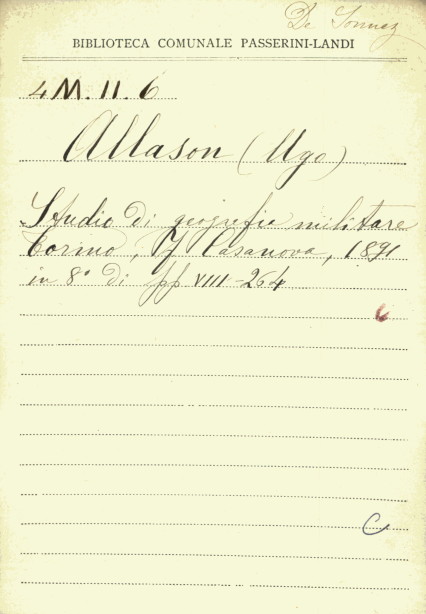 De
BIBLIOTECA COMUNALE PASSERINI-LANDI
4 M. II. 6
Allason (Ugo)
Studio di geografia militare
Torino, F Casanova, 1891
in 8° di pp VIII-264
C
C